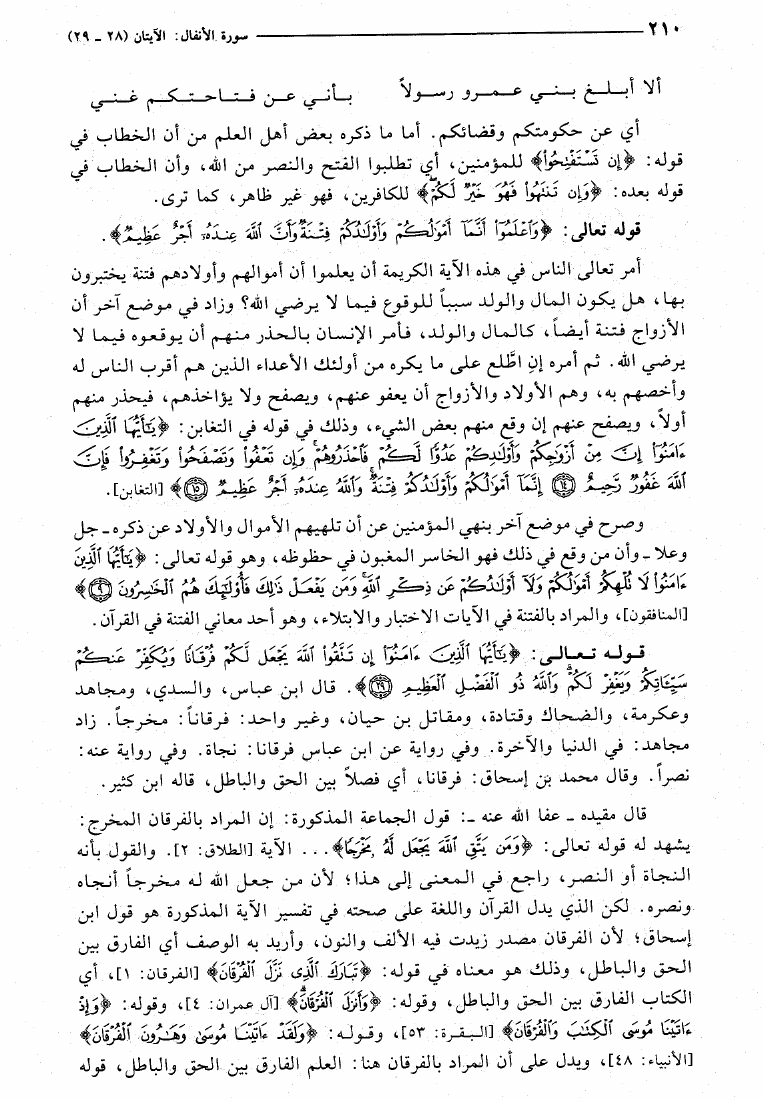 ٢١٠ سورة الأنفال: الآيتان (٢٨ ـ ٢٩)
ألا أبـلـغ بـنـي عـمـرو رسـولاً بـأنـي عـن فـتـاحـتـكـم غـنـي
أي عن حكومتكم وقضائكم. أما ما ذكره بعض أهل العلم من أن الخطاب في
قوله: ﴿إِن تَسْتَفْتِحُوا۟﴾ للمؤمنين، أي تطلبوا الفتح والنصر من الله، وأن الخطاب في
قوله بعده: ﴿وَإِن تَنتَهُوا۟ فَهُوَ خَيْرٌ لَّكُمْ﴾ للكافرين، فهو غير ظاهر، كما ترى.
قوله تعالى: ﴿وَٱعْلَمُوٓا۟ أَنَّمَآ أَمْوَٰلُكُمْ وَأَوْلَٰدُكُمْ فِتْنَةٌ وَأَنَّ ٱللَّهَ عِندَهُۥٓ أَجْرٌ عَظِيمٌ﴾.
أمر تعالى الناس في هذه الآية الكريمة أن يعلموا أن أموالهم وأولادهم فتنة يختبرون
بها، هل يكون المال والولد سبباً للوقوع فيما لا يرضي الله؟ وزاد في موضع آخر أن
الأزواج فتنة أيضاً، كالمال والولد، فأمر الإنسان بالحذر منهم أن يوقعوه فيما لا
يرضي الله. ثم أمره إن اطَّلع على ما يكره من أولئك الأعداء الذين هم أقرب الناس له
وأخصهم به، وهم الأولاد والأزواج أن يعفو عنهم، ويصفح ولا يؤاخذهم، فيحذر منهم
أولاً، ويصفح عنهم إن وقع منهم بعض الشيء، وذلك في قوله في التغابن: ﴿يَٰٓأَيُّهَا ٱلَّذِينَ
ءَامَنُوٓا۟ إِنَّ مِنْ أَزْوَٰجِكُمْ وَأَوْلَٰدِكُمْ عَدُوًّا لَّكُمْ فَٱحْذَرُوهُمْ وَإِن تَعْفُوا۟ وَتَصْفَحُوا۟ وَتَغْفِرُوا۟ فَإِنَّ
ٱللَّهَ غَفُورٌ رَّحِيمٌ ١٤ إِنَّمَآ أَمْوَٰلُكُمْ وَأَوْلَٰدُكُمْ فِتْنَةٌ وَٱللَّهُ عِندَهُۥٓ أَجْرٌ عَظِيمٌ ١٥﴾ [التغابن].
وصرح في موضع آخر بنهي المؤمنين عن أن تلهيهم الأموال والأولاد عن ذكره ـ جل
وعلا ـ وأن من وقع في ذلك فهو الخاسر المغبون في حظوظه، وهو قوله تعالى: ﴿يَٰٓأَيُّهَا ٱلَّذِينَ
ءَامَنُوا۟ لَا تُلْهِكُمْ أَمْوَٰلُكُمْ وَلَآ أَوْلَٰدُكُمْ عَن ذِكْرِ ٱللَّهِ وَمَن يَفْعَلْ ذَٰلِكَ فَأُو۟لَٰٓئِكَ هُمُ ٱلْخَٰسِرُونَ ٩﴾
[المنافقون]، والمراد بالفتنة في الآيات الاختبار والابتلاء، وهو أحد معاني الفتنة في القرآن.
قوله تعالى: ﴿يَٰٓأَيُّهَا ٱلَّذِينَ ءَامَنُوٓا۟ إِن تَتَّقُوا۟ ٱللَّهَ يَجْعَل لَّكُمْ فُرْقَانًا وَيُكَفِّرْ عَنكُمْ
سَيِّـَٔاتِكُمْ وَيَغْفِرْ لَكُمْ وَٱللَّهُ ذُو ٱلْفَضْلِ ٱلْعَظِيمِ ٢٩﴾. قال ابن عباس، والسدي، ومجاهد
وعكرمة، والضحاك وقتادة، ومقاتل بن حيان، وغير واحد: فرقاناً: مخرجاً. زاد
مجاهد: في الدنيا والآخرة. وفي رواية عن ابن عباس فرقانا: نجاة. وفي رواية عنه:
نصراً. وقال محمد بن إسحاق: فرقانا، أي فصلاً بين الحق والباطل، قاله ابن كثير.
قال مقيده ـ عفا الله عنه ـ: قول الجماعة المذكورة: إن المراد بالفرقان المخرج:
يشهد له قوله تعالى: ﴿وَمَن يَتَّقِ ٱللَّهَ يَجْعَل لَّهُۥ مَخْرَجًا﴾... الآية [الطلاق: ٢]. والقول بأنه
النجاة أو النصر، راجع في المعنى إلى هذا؛ لأن من جعل الله له مخرجاً أنجاه
ونصره. لكن الذي يدل القرآن واللغة على صحته في تفسير الآية المذكورة هو قول ابن
إسحاق؛ لأن الفرقان مصدر زيدت فيه الألف والنون، وأريد به الوصف أي الفارق بين
الحق والباطل، وذلك هو معناه في قوله: ﴿تَبَارَكَ ٱلَّذِى نَزَّلَ ٱلْفُرْقَانَ﴾ [الفرقان: ١]، أي
الكتاب الفارق بين الحق والباطل، وقوله: ﴿وَأَنزَلَ ٱلْفُرْقَانَ﴾ [آل عمران: ٤]، وقوله: ﴿وَإِذْ
ءَاتَيْنَا مُوسَى ٱلْكِتَٰبَ وَٱلْفُرْقَانَ﴾ [البقرة: ٥٣]، وقوله: ﴿وَلَقَدْ ءَاتَيْنَا مُوسَىٰ وَهَٰرُونَ ٱلْفُرْقَانَ﴾
[الأنبياء: ٤٨]، ويدل على أن المراد بالفرقان هنا: العلم الفارق بين الحق والباطل، قوله